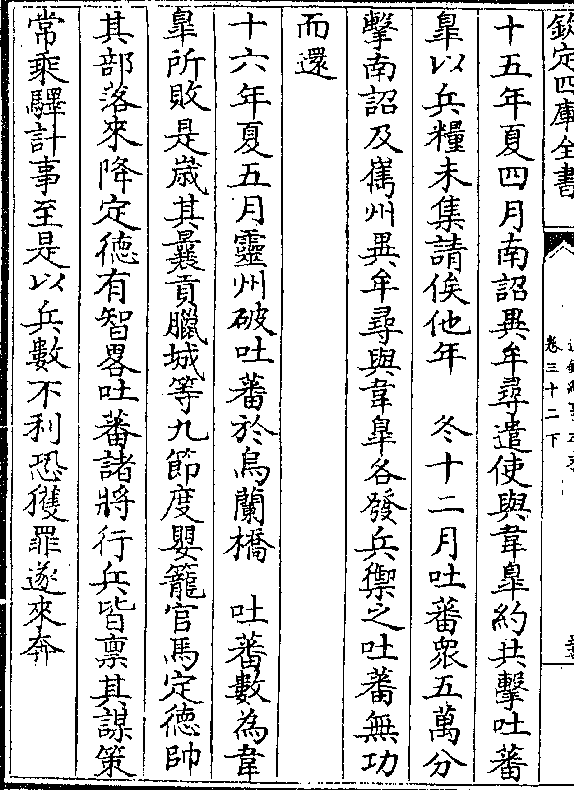 欽定四庫全書
卷三十二下
十五年夏四月南詔異牟尋遣使與韋臯約共擊吐蕃
臯以兵糧未集請俟他年　冬十二月吐蕃衆五萬分
擊南詔及嶲州異牟尋與韋臯各發兵禦之吐蕃無功
而還
十六年夏五月靈州破吐蕃於烏蘭橋　吐蕃數為韋
臯所敗是歲其曩貢臘城等九節度嬰籠官馬定德帥
其部落來降定德有智畧吐蕃諸將行兵皆禀其謀策
常乘驛計事至是以兵數不利恐獲罪遂來奔